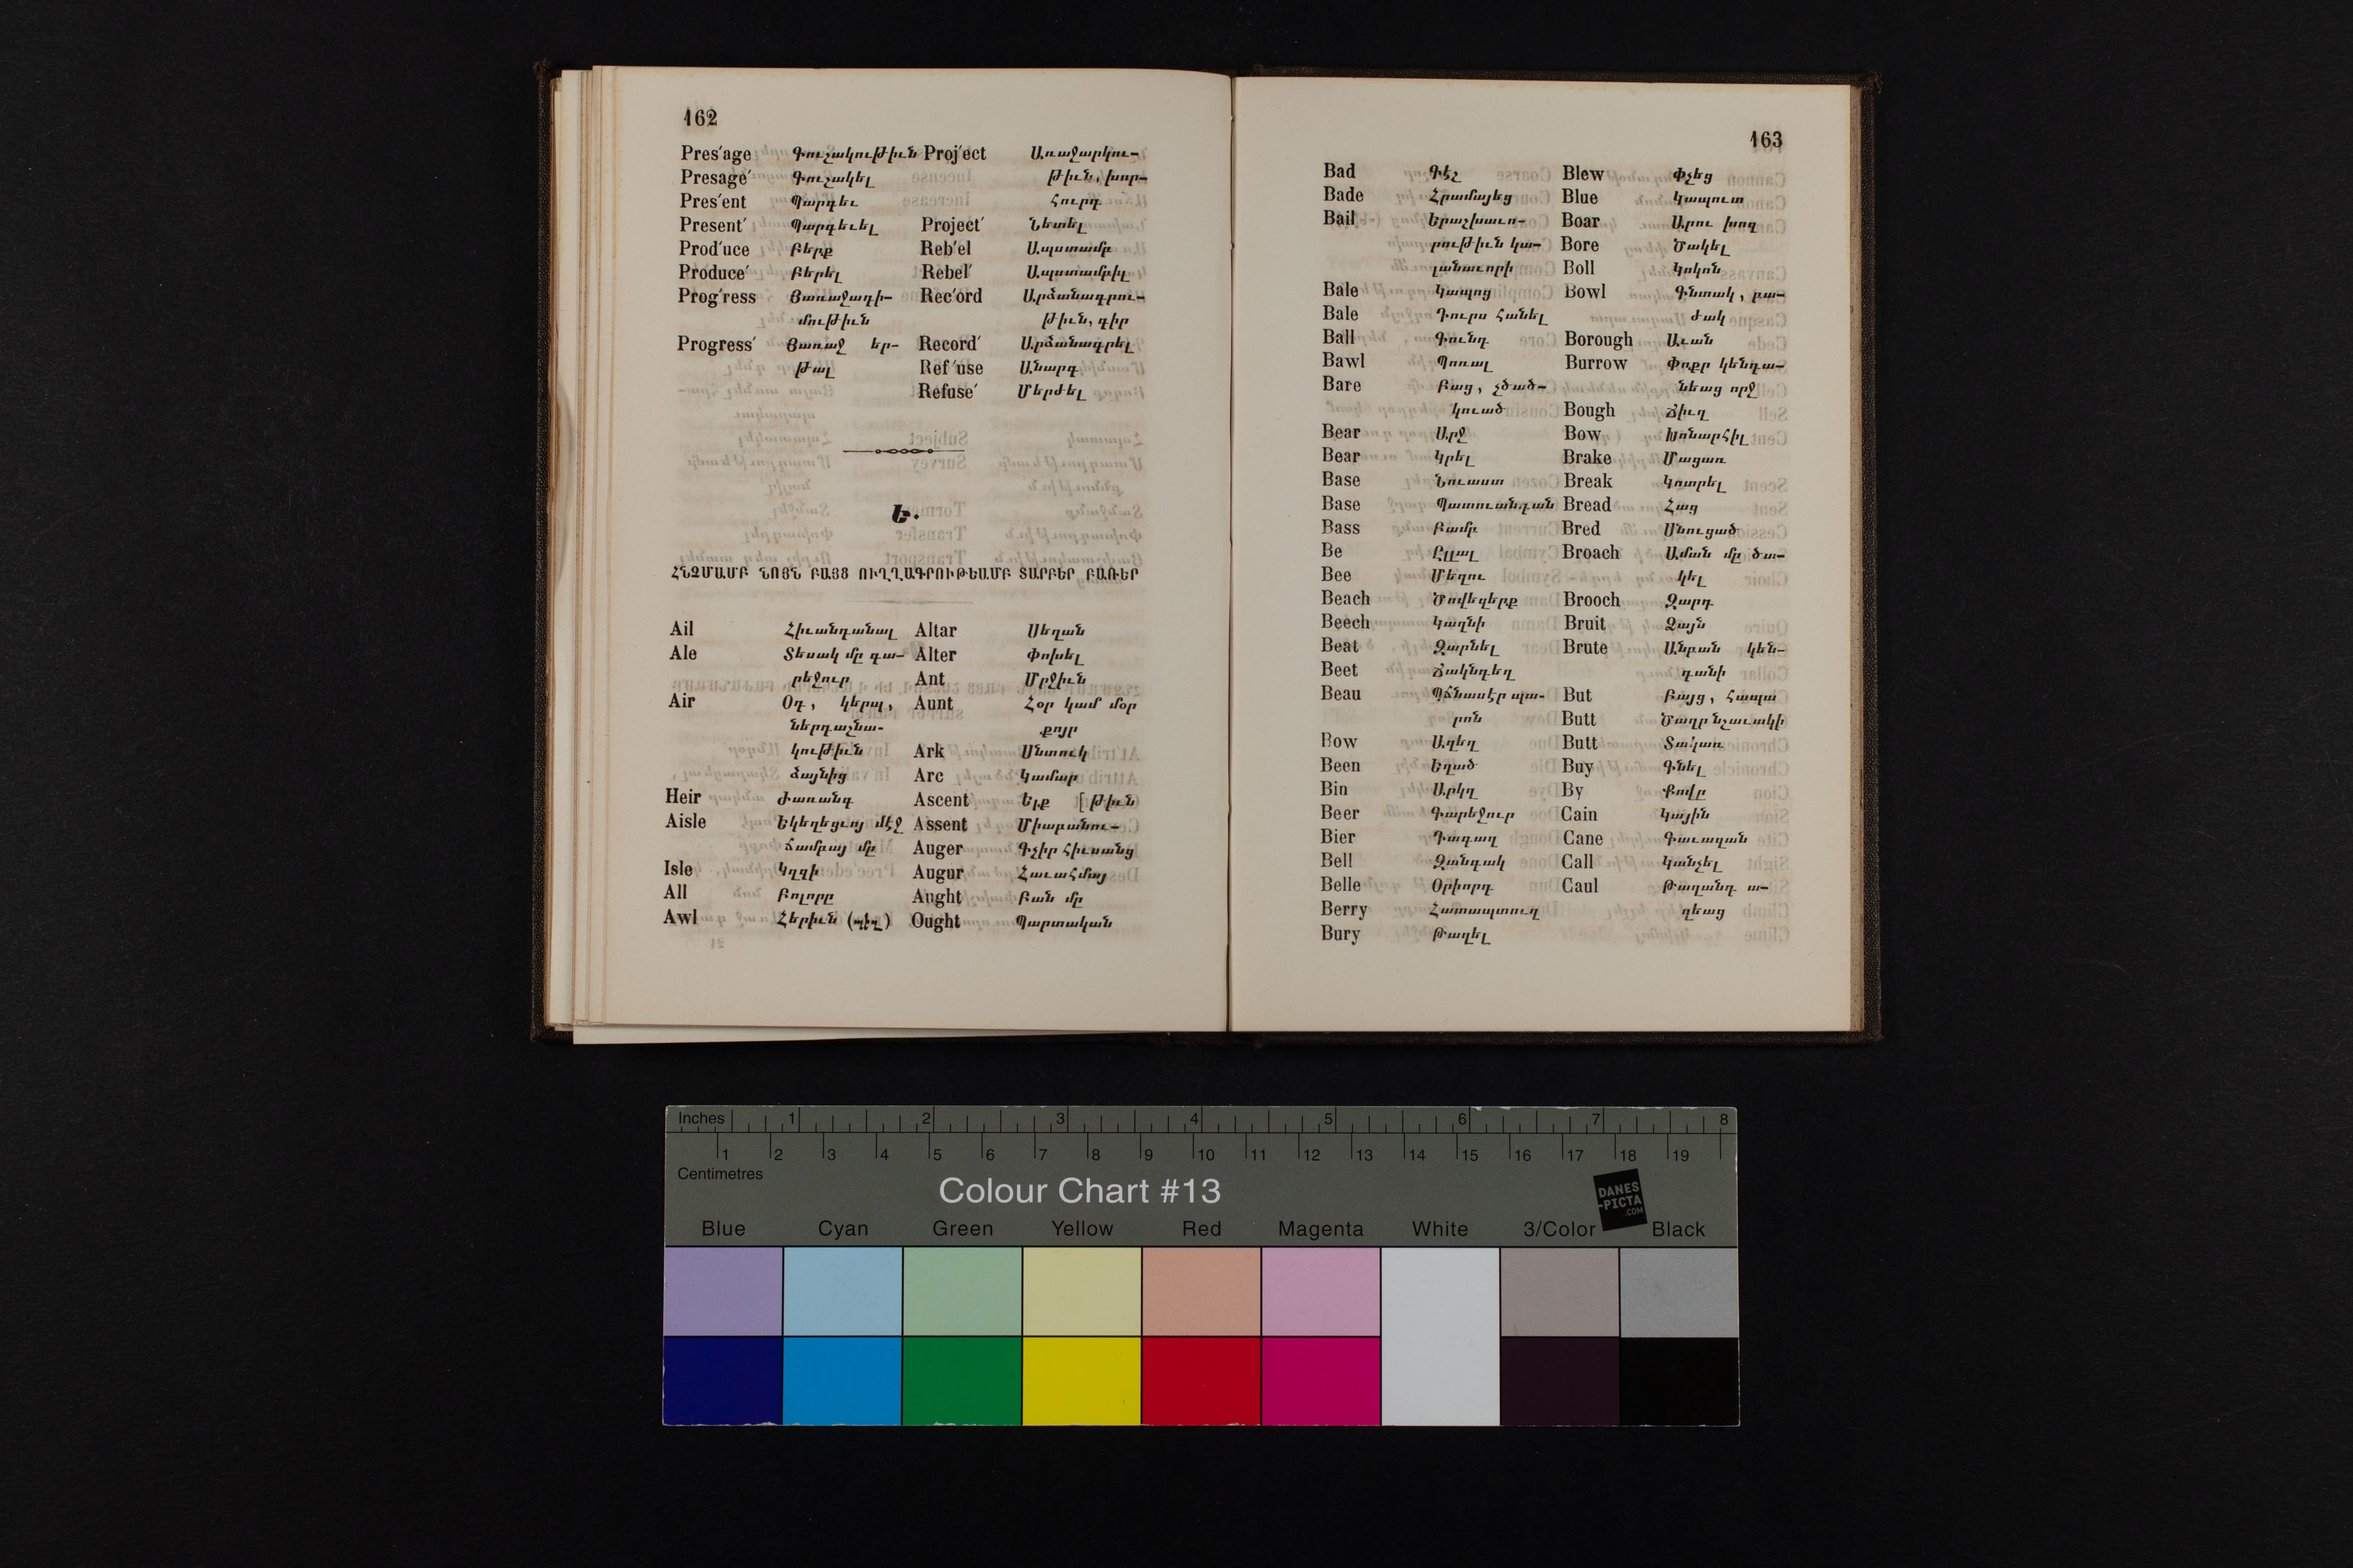 162
Pres′age Գուշակութիւն
Presage′ Գուշակել
Pres′ent Պարգեւ
Present′ Պարգեւել
Prod′uce Բերք
Produce′ Բերել
Prog′ress Յառաջադի-
մութիւն
Progress′ Յառաջ եր-
թալ
Proj′ect Առաջարկու-
թիւն, խոր-
հուրդ
Project′ Նետել
Reb′el Ապստամբ
Rebel′ Ապստամբիլ
Rec′ord Արձանագրու-
թիւն, գիր
Record′ Արձանագրել
Ref′use Անարգ
Refuse′ Մերժել
Ե.
ՀՆՉՄԱՄԲ ՆՈՅՆ ԲԱՅՑ ՈՒՂՂԱԳՐՈՒԹԵԱՄԲ ՏԱՐԲԵՐ ԲԱՌԵՐ
Ail Հիւանդանալ
Ale Տեսակ մը գա-
րեջուր
Air Օդ, կերպ,
ներդաշնա-
կութիւն
ձայնից
Heir Ժառանգ
Aisle Եկեղեցւոյ մէջ
ճամբայ մը
Isle Կղզի
All Բոլորը
Awl Հերիւն (պիզ)
Altar Սեղան
Alter Փոխել
Ant Մրջիւն
Aunt Հօր կամ մօր
քոյր
Ark Սնտուկ
Arc Կամար
Ascent Ելք [թիւն
Assent Միաբանու-
Auger Գչիր հիւսանց
Augur Հաւահմայ
Aught Բան մը
Ought Պարտական
163
Bad Գէշ
Bade Հրամայեց
Bail Երաշխաւո-
րութիւն կա-
լանաւորի
Bale Կապոց
Bale Դուրս հանել
Ball Գունդ
Bawl Պոռալ
Bare Բաց, չծած-
կուած
Bear Արջ
Bear Կրել
Base Նուաստ
Base Պատուանդան
Bass Բամբ
Be Ըլլալ
Bee Մեղու
Beach Ծովեզերք
Beech Կաղնի
Beat Զարնել
Beet Ճակնդեղ
Beau Պճնասէր պա-
րոն
Bow Աղեղ
Been Եղած
Bin Արկղ
Beer Գարեջուր
Bier Դագաղ
Bell Զանգակ
Belle Օրիորդ
Berry Հատապտուղ
Bury Թաղել
Blew Փչեց
Blue Կապուտ
Boar Արու խոզ
Bore Ծակել
Boll Կոկոն
Bowl Գնտակ, բա-
ժակ
Borough Աւան
Burrow Փոքր կենդա-
նեաց որջ
Bough Ճիւղ
Bow Խոնարհիլ
Brake Մացառ
Break Կոտրել
Bread Հաց
Bred Սնուցած
Broach Աման մը ծա-
կել
Brooch Զարդ
Bruit Ձայն
Brute Անբան կեն-
դանի
But Բայց, հապա
Butt Ծաղր նշաւակի
Butt Տակառ
Buy Գնել
By Քովը
Cain Կային
Cane Գաւազան
Call Կանչել
Caul Թաղանդ ա-
ղեաց
Inches 1 2 3 4 5 6 7 8
1 2 3 4 5 6 7 8 9 10 11 12 13 14 15 16 17 18 19
Centimetres
Colour Chart #13
DANES
-PICTA
.COM
Blue Cyan Green Yellow Red Magenta White 3/Color Black